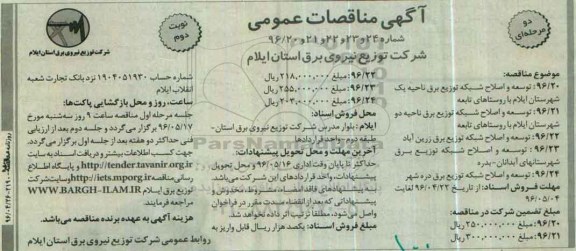 آگهی مناقصات عمومی
شماره ۲۴و۲۳و۲۲و۲۱و۹۶/۲۰
شرکت توزیع نیروی برق استان ایلام
دو
مرحله‌ای
نوبت
دوم
شرکت توزیع نیروی برق استان ایلام
موضوع مناقصه:
۹۶/۲۰: توسعه و اصلاح شبکه توزیع برق ناحیه یک
شهرستان ایلام با روستاهای تابعه
۹۶/۲۱: توسعه و اصلاح شبکه توزیع برق ناحیه دو
شهرستان ایلام با روستاهای تابعه
۹۶/۲۲: توسعه و اصلاح شبکه توزیع برق زرین آباد
۹۶/۲۳: توسعه و اصلاح شبکه توزیع برق
شهرستانهای آبدانان -بدره
۹۶/۲۴: توسعه و اصلاح شبکه توزیع برق دره شهر
مهلت فروش اسناد: از تاریخ ۹۶/۰۴/۲۲ لغایت
۹۶/۰۵/۰۴
مبلغ تضمین شرکت در مناقصه:
۹۶/۲۰: مبلغ ۲۵۰,۰۰۰,۰۰۰ ریال
۹۶/۲۱: مبلغ ۳۰۰,۰۰۰,۰۰۰ ریال
۹۶/۲۲: مبلغ ۲۱۸,۰۰۰,۰۰۰ ریال
۹۶/۲۳: مبلغ ۲۵۵,۰۰۰,۰۰۰ ریال
۹۶/۲۴: مبلغ ۲۰۳,۰۰۰,۰۰۰ ریال
محل فروش اسناد:
ایلام: بلوار مدرس شرکت توزیع نیروی برق استان-
طبقه دوم -واحد قراردادها
آخرین مهلت و محل تحویل پیشنهادات:
حداکثر تا پایان وقت اداری ۹۶/۰۵/۱۶ و محل تحویل
پیشنهادات، واحد قراردادهای این شرکت می‌باشد
و به پیشنهادهای فاقد امضاء، مشروط، مخدوش و
پیشنهاداتی که بعد از انقضاء مدت مقرر در فراخوان
واصل می‌شود، مطلقاً ترتیب اثر داده نخواهد شد.
مبلغ فروش اسناد: یکصد هزار ریال قابل واریز به
شماره حساب ۱۹۰۴۰۵۱۹۳۰ نزد بانک تجارت شعبه
انقلاب ایلام
ساعت، روز و محل بازگشایی پاکت‌ها:
جلسه مرحله اول مناقصه ساعت ۹ روز سه‌شنبه مورخ
۹۶/۰۵/۱۷ برگزار می‌گردد و جلسه دوم بعد از ارزیابی
فنی حداکثر دو هفته بعد از جلسه اول برگزار می‌گردد.
جهت کسب اطلاعات بیشتر و دریافت اسناد به سایت
http://tender.tavanir.org.ir و پایگاه اطلاع
رسانی مناقصه http://iets.mporg.ir و سایت شرکت
توزیع برق ایلام WWW.BARGH-ILAM.IR
مراجعه فرمایند.
هزینه آگهی به عهده برنده مناقصه می‌باشد.
روابط عمومی شرکت توزیع نیروی برق استان ایلام